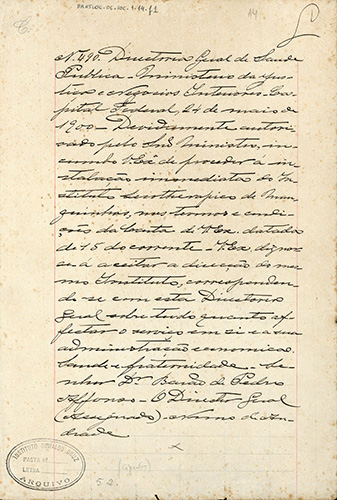 14.
Nº 490. Directoria Geral de Saude
Publica – Ministerio da Jus-
tiça e Negocios Interiores. Ca-
pital Federal, 24 de maio de
1900 – Devidamente autori-
sado pelo Snr. Ministro, in-
cumbo V. Exª de proceder á in-
stalação immediata do In-
stituto Serotherapico de Man-
guinhos, nos termos e condi-
ções da Carta de V. Ex. datada
de 15 do corrente – V. Ex. dignar
se-á aceitar a direcção do mes-
mo Instituto, corresponden-
do-se com esta Directoria
Geral sobre tudo quanto af-
fectar o serviço em si e a sua
administração economica.
Saude e fraternidade – Se-
nhor Dr. Barão de Pedro
Affonso – O Director Geral
(Assignado) – Nuno de An-
drade
INSTITUTO OSWALDO CRUZ
PASTA Nº
LETRA
ARQUIVO
(copia)
52.